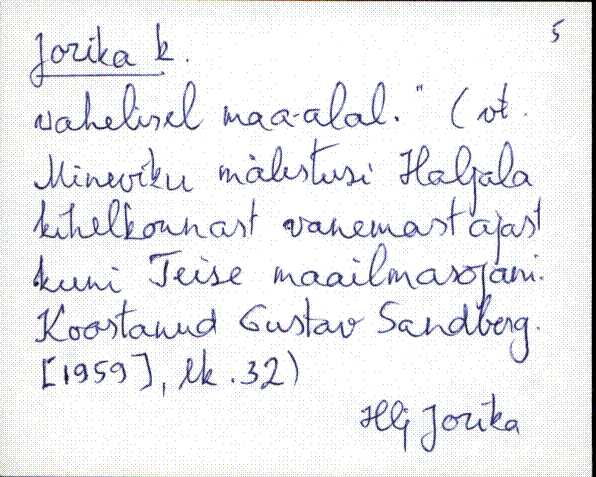 5
Jorika k.
vahelisel maa-alal." (vt.
Mineviku mälestusi Haljala
kihelkonnast vanemast ajast
kuni Teise maailmasõjani.
Koostanud Gustav Sandberg.
[1959], lk. 32)
Hlj Jorika